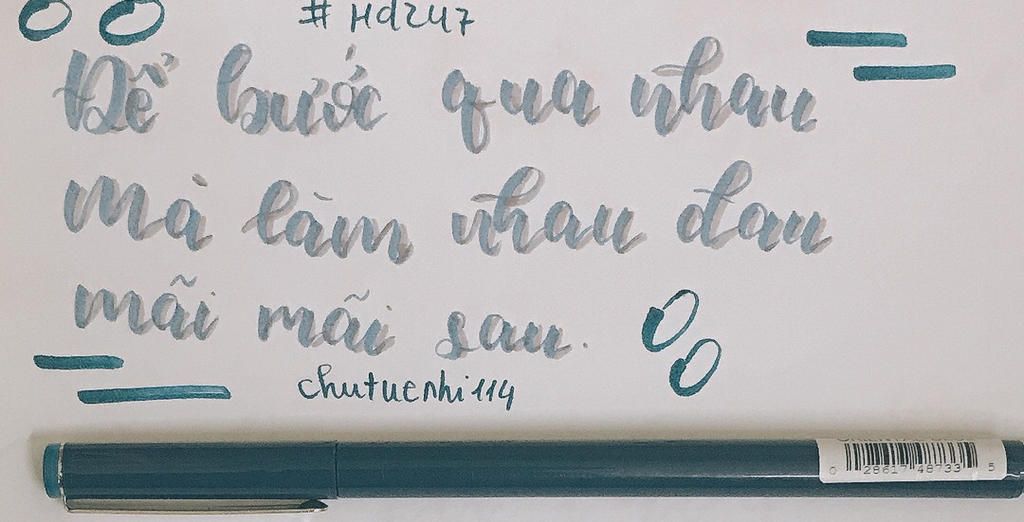 #Hd247
Để bước qua nhau
mà làm nhau đau
mãi mãi sau.
chutuenhi114
0 28617 48733 5